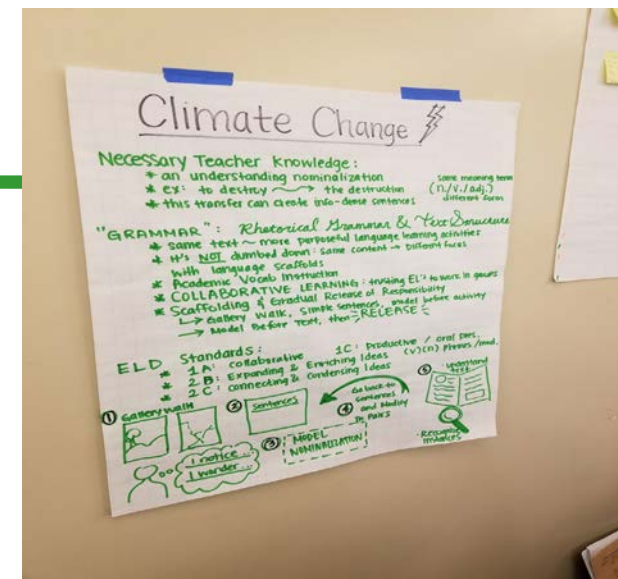 Climate Change
Necessary Teacher Knowledge:
* an understanding nominalization
* ex: to destroy → the destruction
same meaning term
(n/v./adj.)
different form
* this transfer can create info-dense sentences
"GRAMMAR": Rhetorical Grammar & Text Structure
* same text ~ more purposeful language learning activities
* It's NOT dumbed down: same content → Different faces
with language scaffolds
* Academic Vocab Instruction
* COLLABORATIVE LEARNING: trusting EL's to work in groups
* Scaffolding & Gradual Release of Responsibility
↳ Gallery Walk, simple sentences, model before activity
→ Model Before Text, then RELEASE
ELD Standards:
* 1A: collaborative
1C: Productive / oral
(v)(n)
* 2B: Expanding & Enriching Ideas
* 2C: connecting & Condensing Ideas
① Gallery walk
② Sentences
③ MODEL
NOMINALIZATION
④ Go back to
sentences
and Modify
In Pairs
⑤ · understand
text
· Recognize
I notice...
I wonder...